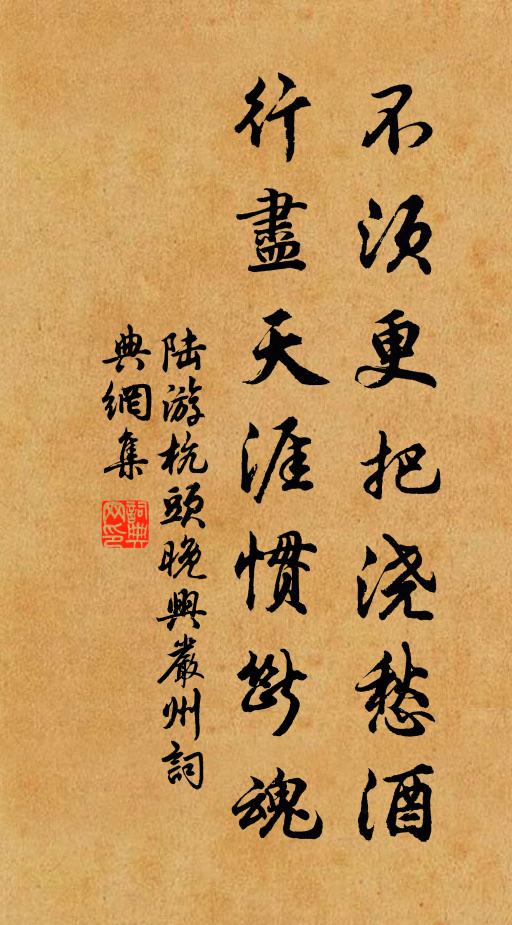 不须更把浇愁酒
行盡天涯慣斷魂
陆游杭頭晚興嚴州詞
典網集
詞典
网印